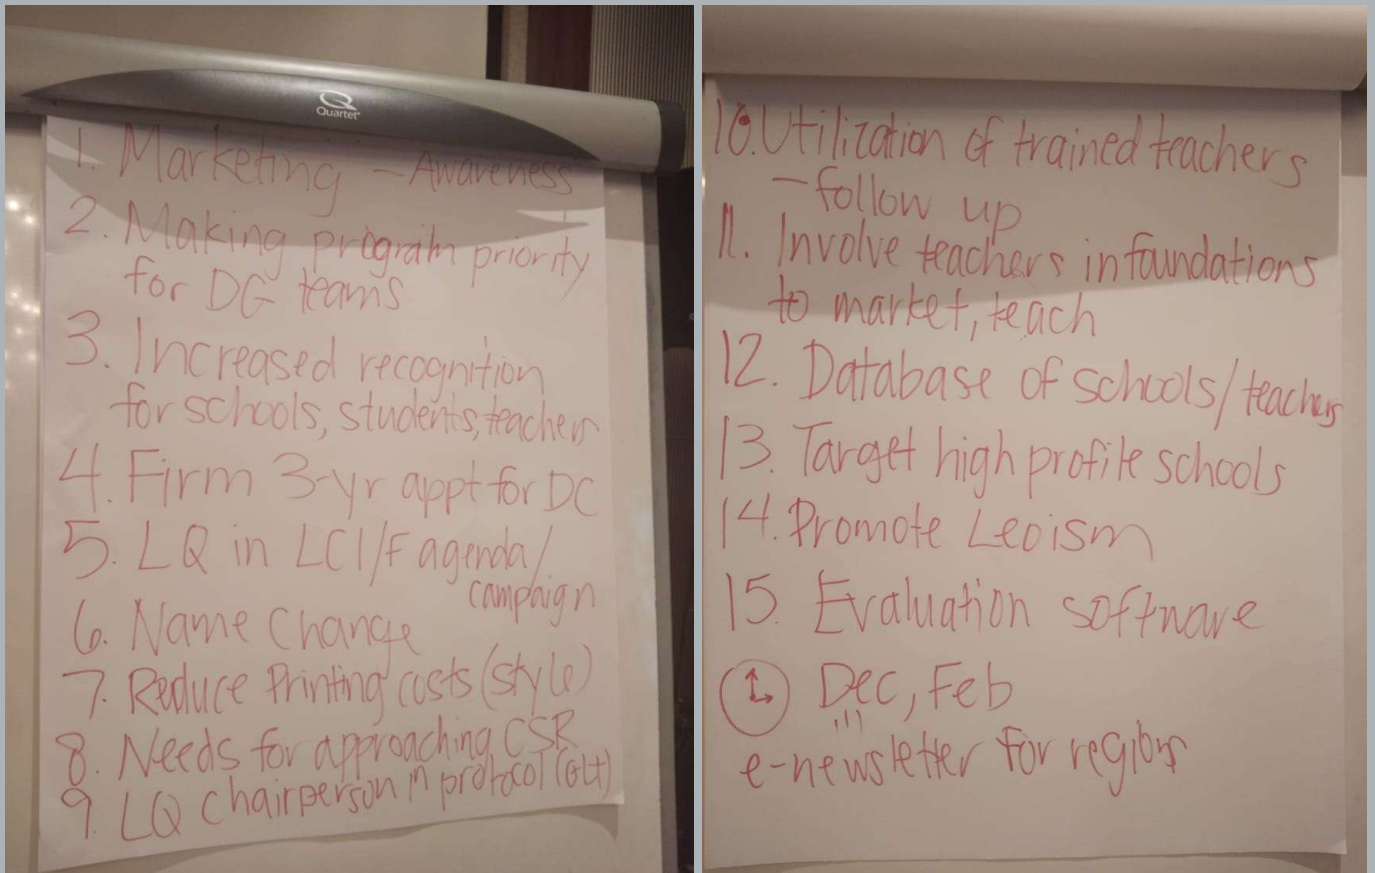 Quartet
1. Marketing - Awareness
2. Making program priority
for DG teams
3. Increased recognition
for schools, students, teachers
4. Firm 3-yr appt for DC
5. LQ in LCI/F agenda/
campaign
6. Name Change
7. Reduce Printing costs (style)
8. Needs for approaching CSR
9. LQ Chairperson in protocol (GLT)
10. Utilization of trained teachers
- follow up
11. Involve teachers in foundations
to market, teach
12. Database of schools/teachers
13. Target high profile schools
14. Promote Leoism
15. Evaluation software
Dec, Feb
e-newsletter for regions